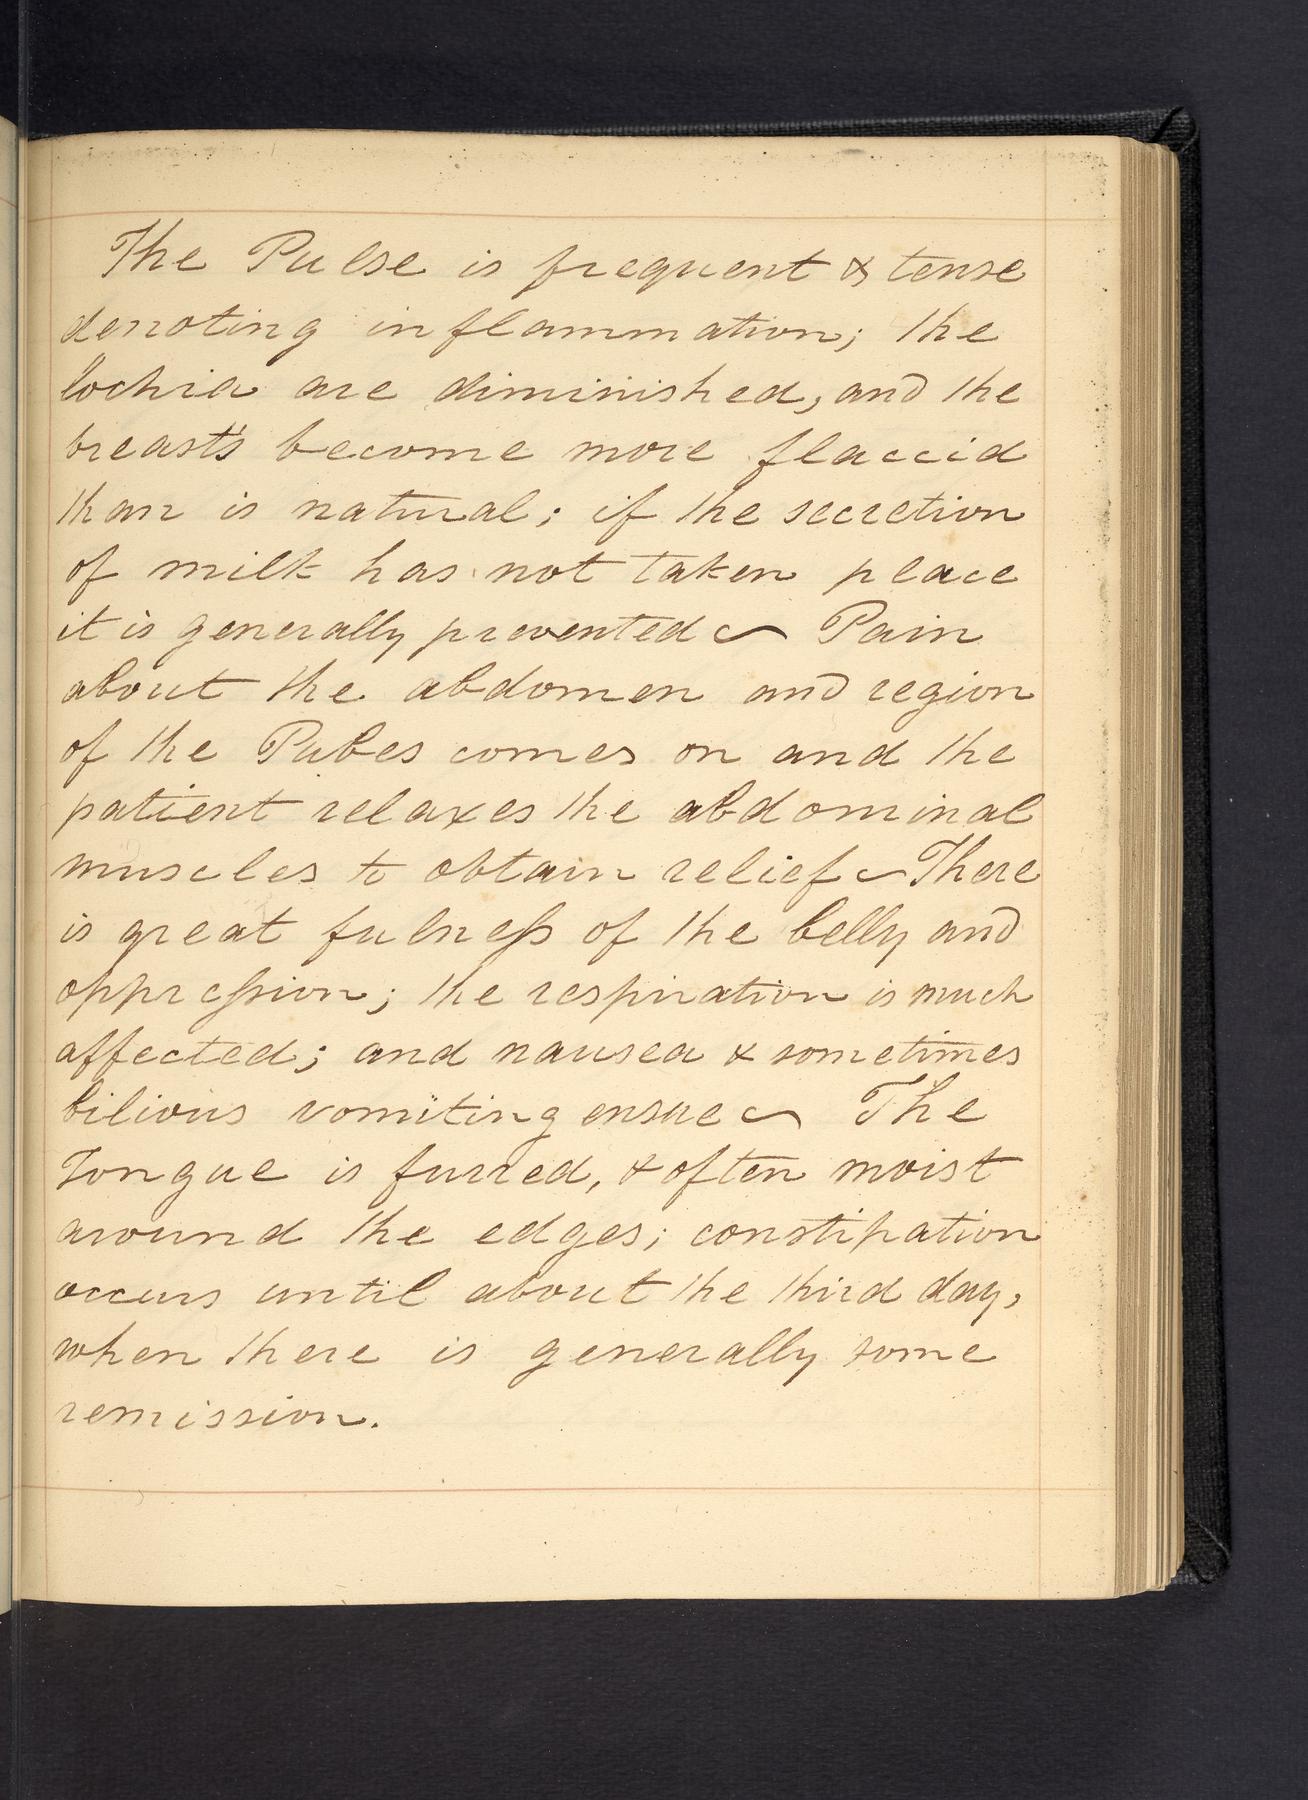 The Pulse is frequent & tense
denoting inflammation; the
lochia are diminished, and the
breasts become more flaccid
than is natural; if the secretion
of milk has not taken place
it is generally prevented ~ Pain
about the abdomen and region
of the Pubes comes on and the
patient relaxes the abdominal
muscles to obtain relief ~ There
is great fulneſs of the belly and
oppreſsion; the respiration is much
affected; and nausea & sometimes
bilious vomiting ensue ~ The
Tongue is furred, & often moist
around the edges; constipation
occurs until about the third day,
when there is generally some
remission.